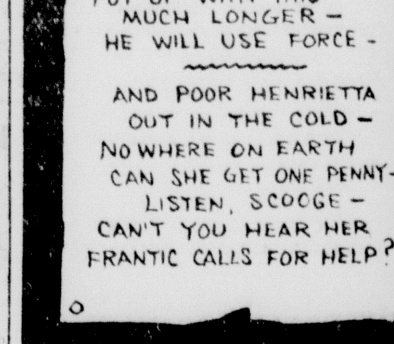 MUCH LONGER —
HE WILL USE FORCE -
AND POOR HENRIETTA
OUT IN THE COLD —
NOWHERE ON EARTH
CAN SHE GET ONE PENNY-
LISTEN, SCOOGE —
CAN'T YOU HEAR HER
FRANTIC CALLS FOR HELP?